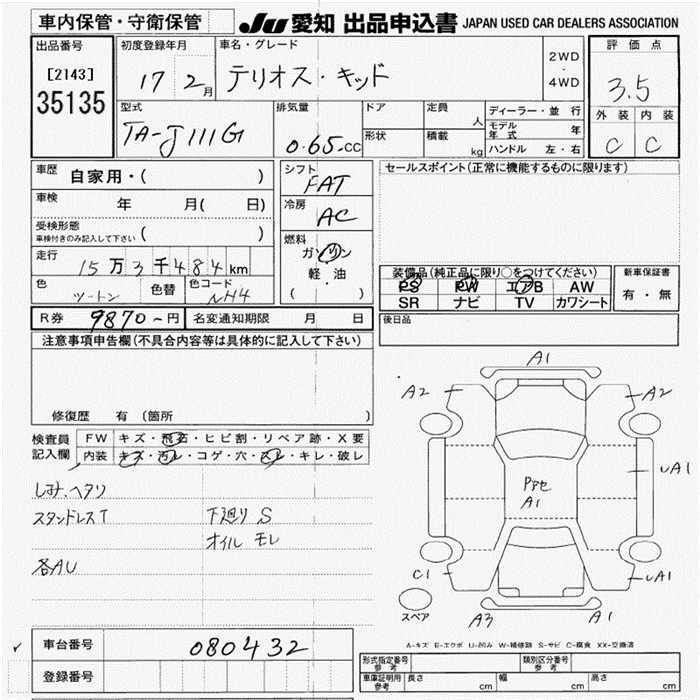 車内保管・守衛保管
JU 愛知 出品申込書 JAPAN USED CAR DEALERS ASSOCIATION
出品番号
[2143]
35135
初度登録年月
17 2月
車名・グレード
テリオス・キッド
2WD
・
4WD
評価点
3.5
外装 内装
C C
型式
TA-J111G
排気量
0.65-CC
ドア
形状
定員
人
積載
kg
ディーラー・並行
モデル年式 年
ハンドル 左・右
車歴
自家用・( )
車検
年 月( 日)
受検形態
車検付きのみ記入して下さい ( )
走行
15万3千484km
色
ツートン
色替
色コード
NH4
シフト
FAT
冷房
AC
燃料
ガソリン
軽・油
( ・ )
セールスポイント(正常に機能するものに限ります)
装備品(純正品に限り○をつけてください)
PS PW エアB AW
SR ナビ TV カワシート
新車保証書
有・無
R券 9870-円 名変通知期限 月 日
後日品
注意事項申告欄(不具合内容等は具体的に記入して下さい)
修復歴 有 (箇所 )
検査員
記入欄
FW キズ・飛石・ヒビ割・リペア跡・X要
内装 キズ・汚レ・コゲ・穴・スレ・キレ・破レ
しみ、ヘタリ
スタンドレスT
下廻り S
オイル モレ
各AU
A1
A2
A2
A1
A1
C1
A1
スペア
A3
A1
A-キズ E-エクボ U-凹み W-補修跡 S-サビ C-腐食 XX-交換済
✓ 車台番号 080432
登録番号
形式指定番号
参考
類別区分番号
参考
車庫証明用
参考
長さ cm 幅 cm 高さ cm